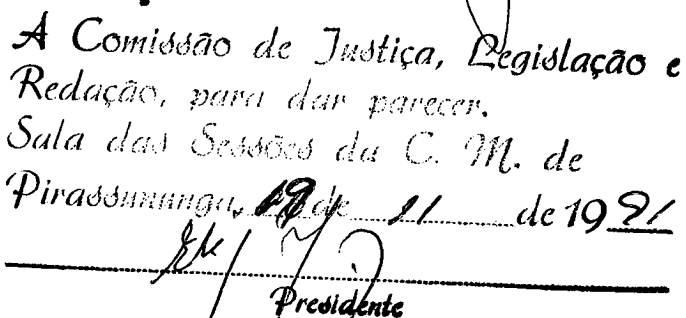 A Comissão de Justiça, Legislação e
Redação, para dar parecer.
Sala das Sessões da C. M. de
Pirassununga, de 11 de 19 91
Presidente